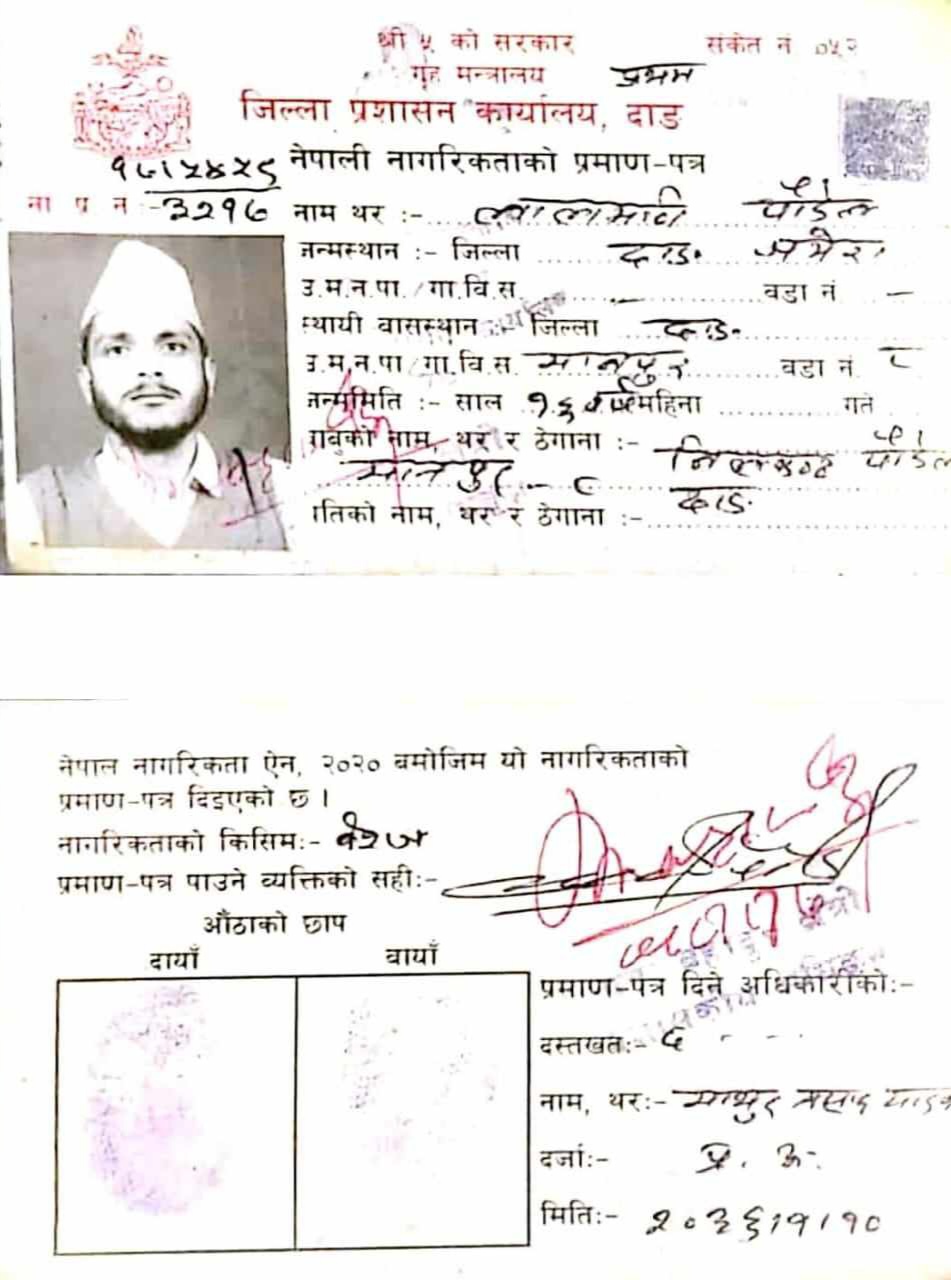 श्री ५ को सरकार संकेत नं ०५२
गृह मन्त्रालय प्रथम
जिल्ला प्रशासन कार्यालय, दाङ
नेपाली नागरिकताको प्रमाण-पत्र
ना प्र न :- नाम थर :- पौडेल
जन्मस्थान :- जिल्ला दाङ
उ.म.न.पा./गा.वि.स. वडा नं –
स्थायी वासस्थान :- जिल्ला दाङ
उ.म.न.पा/गा.वि.स. मानपुर वडा नं. ८
जन्ममिति :- साल १६ वर्ष महिना गते
बाबुको नाम, थर र ठेगाना :- पौडेल
मानपुर – ८ दाङ
पतिको नाम, थर र ठेगाना :-
नेपाल नागरिकता ऐन, २०२० बमोजिम यो नागरिकताको
प्रमाण-पत्र दिइएको छ ।
नागरिकताको किसिमः- वंशज
प्रमाण-पत्र पाउने व्यक्तिको सहीः-
औंठाको छाप
दायाँ बायाँ
प्रमाण-पत्र दिने अधिकारीकोः-
दस्तखतः- द
नाम, थरः- प्रसाद
दर्जाः- प्र. अ.
मितिः- २०३६।१।१०